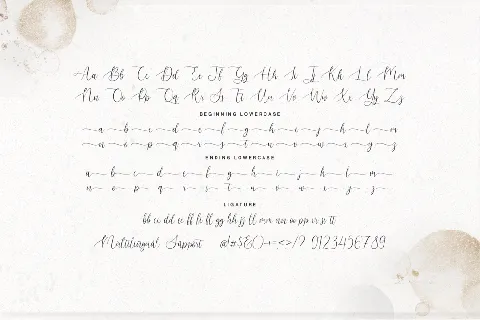 Aa Bb Cc Dd Ee Ff Gg Hh Ii Jj Kk Ll Mm
Nn Oo Pp Qq Rr Ss Tt Uu Vv Ww Xx Yy Zz
BEGINNING LOWERCASE
a b c d e f g h i j k l m
n o p q r s t u v w x y z
ENDING LOWERCASE
a b c d e f g h i j k l m
n o p q r s t u v w x y z
LIGATURE
bb cc dd ee ff
Multilingual Support 0123456789